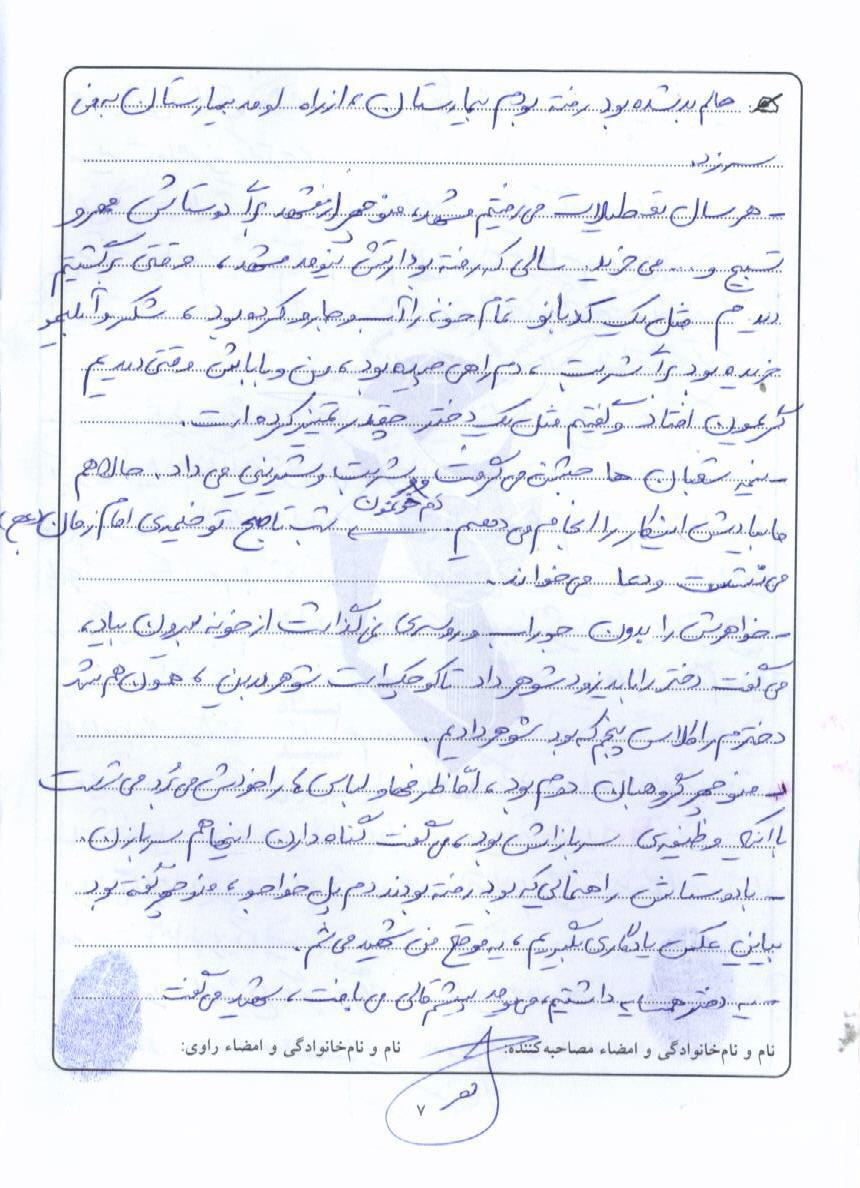 حالم بد شده بود رفته بودم بیمارستان، از راه اومد بیمارستان به من
سر زد.
- هر سال تو تعطیلات می‌رفتیم مشهد، منوچهر از مشهد برا دوستاش مهر و
تسبیح و... می‌خرید. سالی که رفته بود ارتش نیومد مشهد، وقتی برگشتیم
دیدم مثل یک کدبانو تمام خونه را آب و جارو کرده بود، شکر و آبلیمو
خریده بود برا شربت، دم راهی چیده بود، من و باباش وقتی دیدیم
گریمون افتاد و گفتیم مثل یک دختر چقدر تمیز کرده است.
- نیمه شعبان ها جشن می‌گرفت و شربت و شیرینی می‌داد. حالا هم
ما بیادش اینکار را انجام می‌دهیم. دم خونمون شب تا صبح تو خیمه‌ی امام زمان (عج)
می‌نشست و دعا می‌خواند.
- خواهرش را بدون جوراب و روسری نمی‌گذاشت از خونه بیرون بیاد،
می‌گفت دختر را باید زود شوهر داد تا کوچک است شوهر بدین، همون هم شد
دخترم را کلاس پنجم که بود شوهر دادیم.
- منوچهر گروهبان دوم بود، امّا ظرفها و لباس‌ها را خودش می‌بُرد می‌شست
با اینکه وظیفه‌ی سربازاش بود، می‌گفت گناه دارن اینها هم سربازن.
- با دوستاش راهنمایی که بود رفته بودند دم پل خواجو، منوچهر گفته بود
بیاین عکس یادگاری بگیریم، یه موقع من شهید می‌شم.
- یه دختر همسایه داشتیم، می‌ومد پیشم قالی می‌بافت، شهید می‌گفت
نام و نام‌خانوادگی و امضاء مصاحبه‌کننده:
نام و نام‌خانوادگی و امضاء راوی:
۷